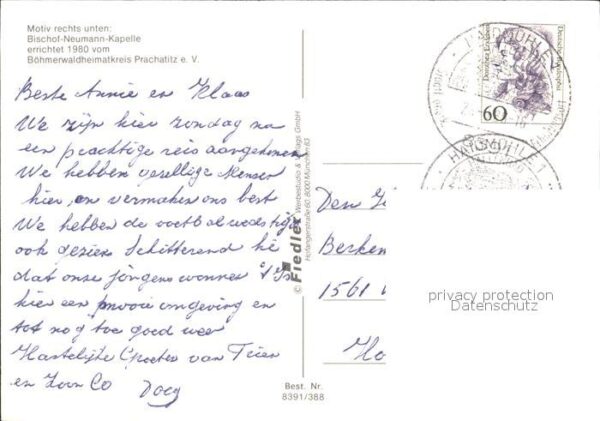 Motiv rechts unten:
Bischof-Neumann-Kapelle
errichtet 1980 vom
Böhmerwaldheimatkreis Prachatitz e. V.
Beste Annie en Klaas
We zijn hier zondag na
een prachtige reis aangekomen
We hebben gesellige Mensen
hier, en vermaken ons best
We hebben de voetbalwedstrijd
ook gezien Schitterend hé
dat onze jongens wonnen
hier een mooie omgeving en
tot nog toe goed weer
Hartelijke Groeten van Trien
en Zoon Co Doeg
© Fiedler Werbestudio & Verlags GmbH
Hofangerstraße 60, 8000 München 83
Best. Nr.
8391/388
Deutsche Bundespost
60
HAIDMÜHLE 1
HAIDMÜHLE 1
Den
Berken
1561
Ho
privacy protection
Datenschutz